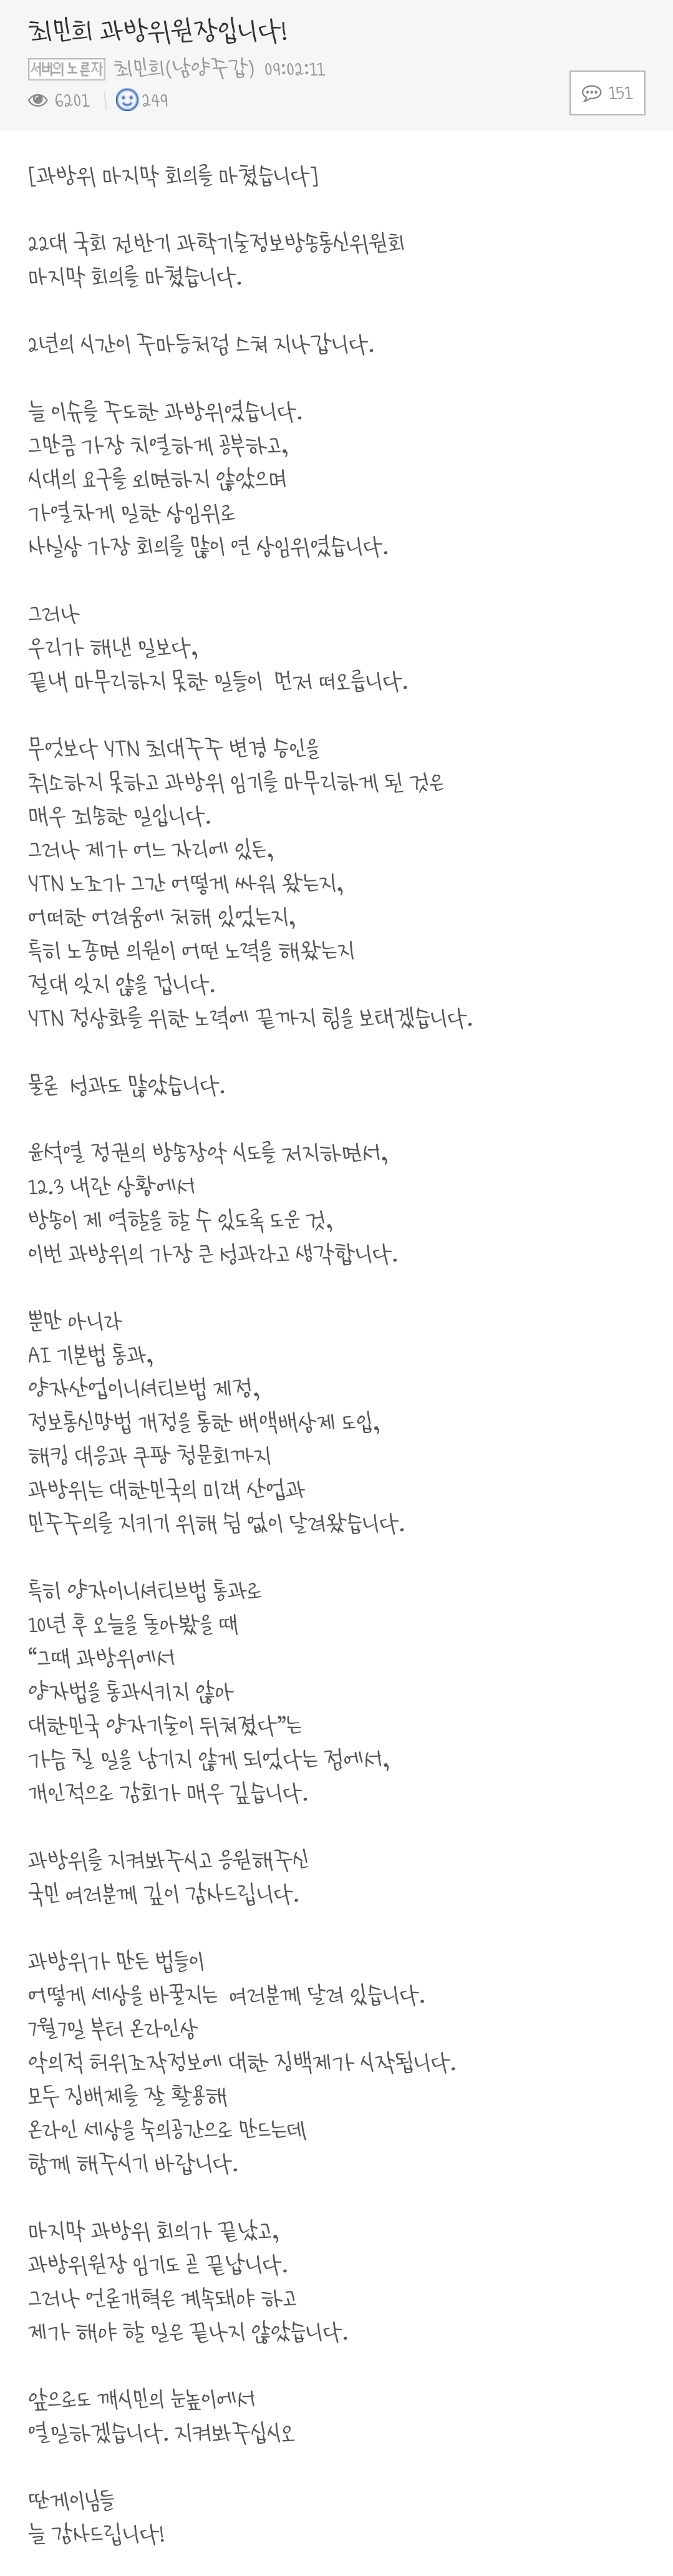 최민희 과방위원장입니다!
서버의 노른자 최민희(남양주갑) 09:02:11
6201 249
151
[과방위 마지막 회의를 마쳤습니다]
22대 국회 전반기 과학기술정보방송통신위원회
마지막 회의를 마쳤습니다.
2년의 시간이 주마등처럼 스쳐 지나갑니다.
늘 이슈를 주도한 과방위였습니다.
그만큼 가장 치열하게 공부하고,
시대의 요구를 외면하지 않았으며
가열차게 일한 상임위로
사실상 가장 회의를 많이 연 상임위였습니다.
그러나
우리가 해낸 일보다,
끝내 마무리하지 못한 일들이 먼저 떠오릅니다.
무엇보다 YTN 최대주주 변경 승인을
취소하지 못하고 과방위 임기를 마무리하게 된 것은
매우 죄송한 일입니다.
그러나 제가 어느 자리에 있든,
YTN 노조가 그간 어떻게 싸워 왔는지,
어떠한 어려움에 처해 있었는지,
특히 노종면 의원이 어떤 노력을 해왔는지
절대 잊지 않을 겁니다.
YTN 정상화를 위한 노력에 끝까지 힘을 보태겠습니다.
물론 성과도 많았습니다.
윤석열 정권의 방송장악 시도를 저지하면서,
12.3 내란 상황에서
방송이 제 역할을 할 수 있도록 도운 것,
이번 과방위의 가장 큰 성과라고 생각합니다.
뿐만 아니라
AI 기본법 통과,
양자산업이니셔티브법 제정,
정보통신망법 개정을 통한 배액배상제 도입,
해킹 대응과 쿠팡 청문회까지
과방위는 대한민국의 미래 산업과
민주주의를 지키기 위해 쉼 없이 달려왔습니다.
특히 양자이니셔티브법 통과로
10년 후 오늘을 돌아봤을 때
“그때 과방위에서
양자법을 통과시키지 않아
대한민국 양자기술이 뒤쳐졌다”는
가슴 칠 일을 남기지 않게 되었다는 점에서,
개인적으로 감회가 매우 깊습니다.
과방위를 지켜봐주시고 응원해주신
국민 여러분께 깊이 감사드립니다.
과방위가 만든 법들이
어떻게 세상을 바꿀지는 여러분께 달려 있습니다.
7월7일 부터 온라인상
악의적 허위조작정보에 대한 징백제가 시작됩니다.
모두 징배제를 잘 활용해
온라인 세상을 숙의공간으로 만드는데
함께 해주시기 바랍니다.
마지막 과방위 회의가 끝났고,
과방위원장 임기도 곧 끝납니다.
그러나 언론개혁은 계속돼야 하고
제가 해야 할 일은 끝나지 않았습니다.
앞으로도 깨시민의 눈높이에서
열일하겠습니다. 지켜봐주십시오
딴게이님들
늘 감사드립니다!